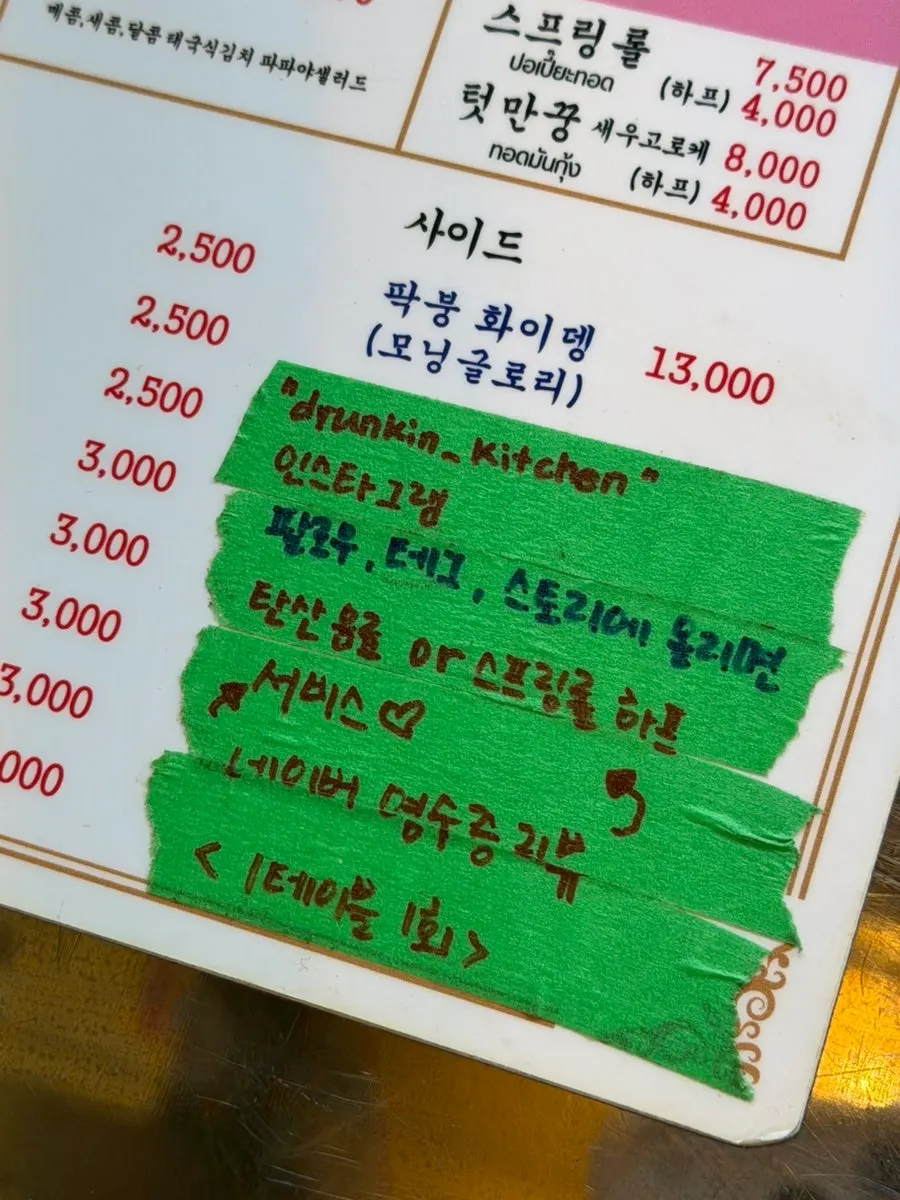 매콤,새콤,달콤 태국식김치 파파야샐러드
스프링롤 7,500
ปอเปี๊ยะทอด (하프) 4,000
텃만꿍 새우고로케 8,000
ทอดมันกุ้ง (하프) 4,000
사이드
2,500
팍붕 화이뎅
(모닝글로리) 13,000
2,500
2,500
3,000
3,000
3,000
3,000
000
"drunkin_kitchen"
인스타그램
팔로우, 테그, 스토리에 올리면
탄산음료 or 스프링롤 하프
서비스♡
네이버 영수증 리뷰
< 1테이블 1회>